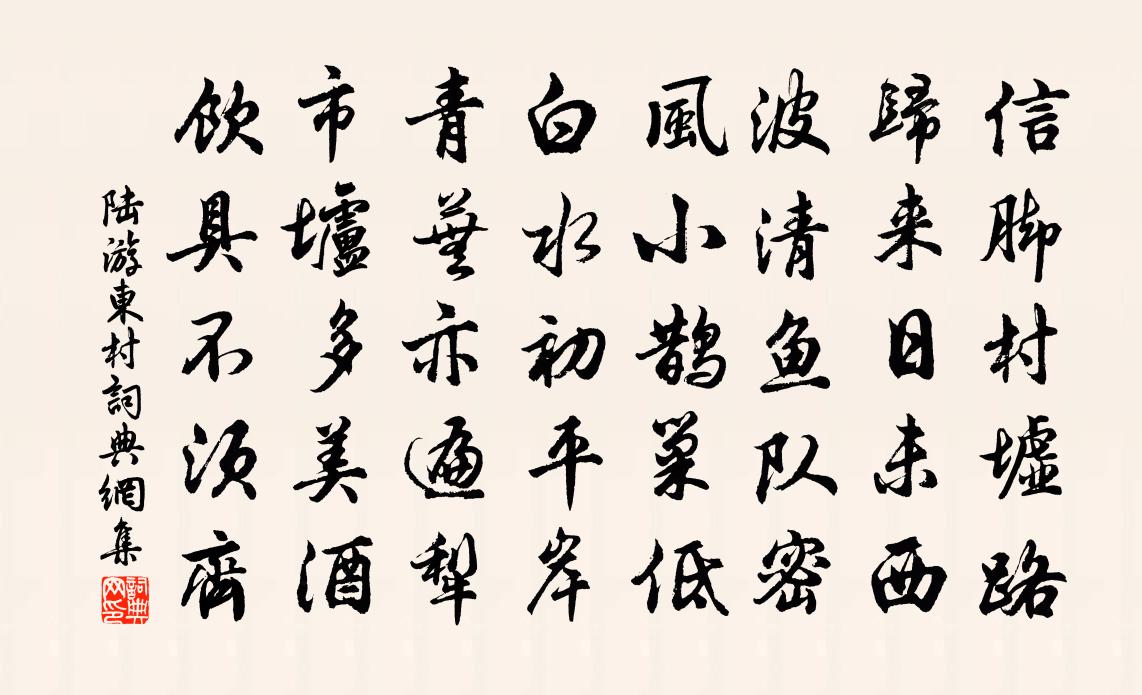 信脚村墟路
歸来日未西
波清鱼队密
風小鵲巢低
白水初平岸
青蕪亦遍犁
市壚多美酒
飲具不須齊
陆游東村詞典網集
詞典网印